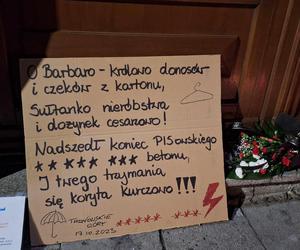 O Barbaro - królowo donosów
i czeków z kartonu,
Sułtanko nieróbstwa
i dożynek cesarzowo!
Nadszedł koniec PISowskiego
** *** *** betonu,
I twego trzymania
się koryta kurczowo!!!
TARNOWSKIE
GÓRY
17.10.2023
***** ***